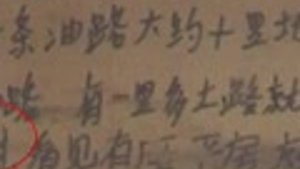 条油路大约十里地
路 有一里多土路就
看见有 平房